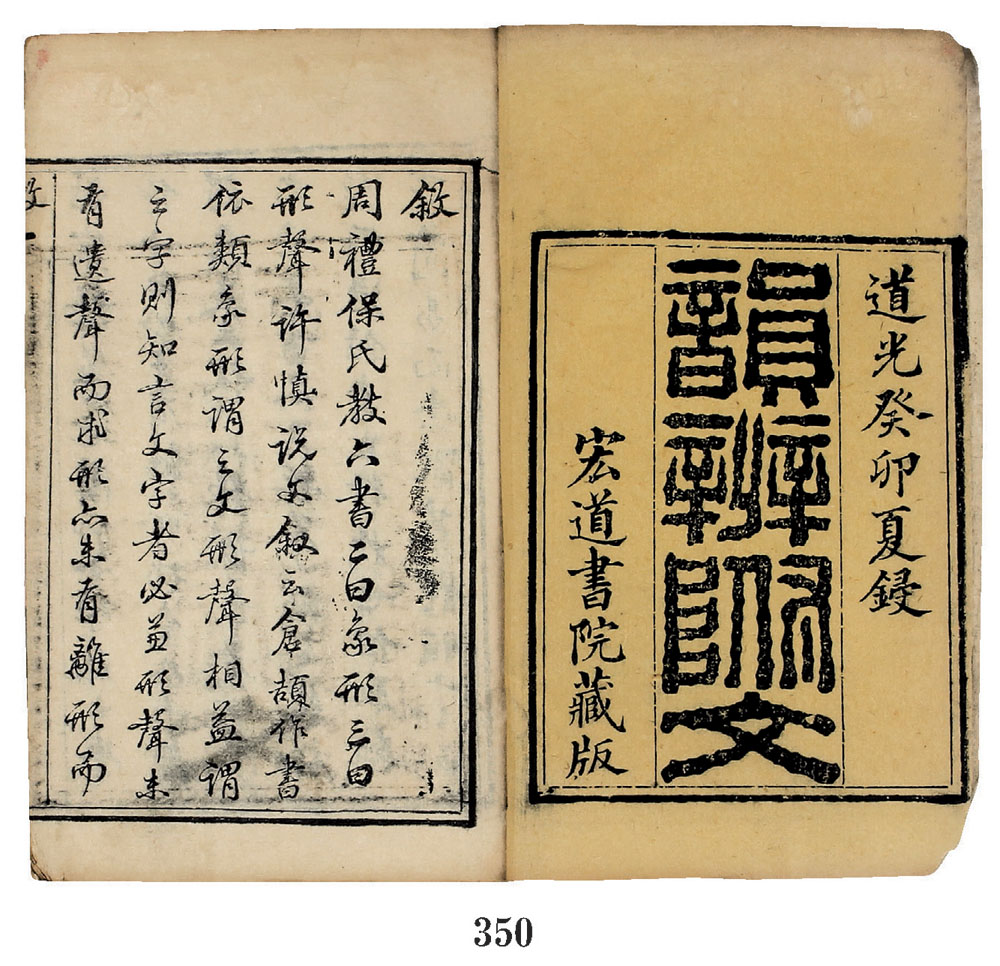 道光癸卯夏鋟
韻辨附文
宏道書院藏版
敘
周禮保氏教六書二曰象形三曰
形聲許慎説文敘云倉頡作書
依類象形謂之文形聲相益謂
之字則知言文字者必兼形聲未
有遺聲而求形亦未有離形而
350